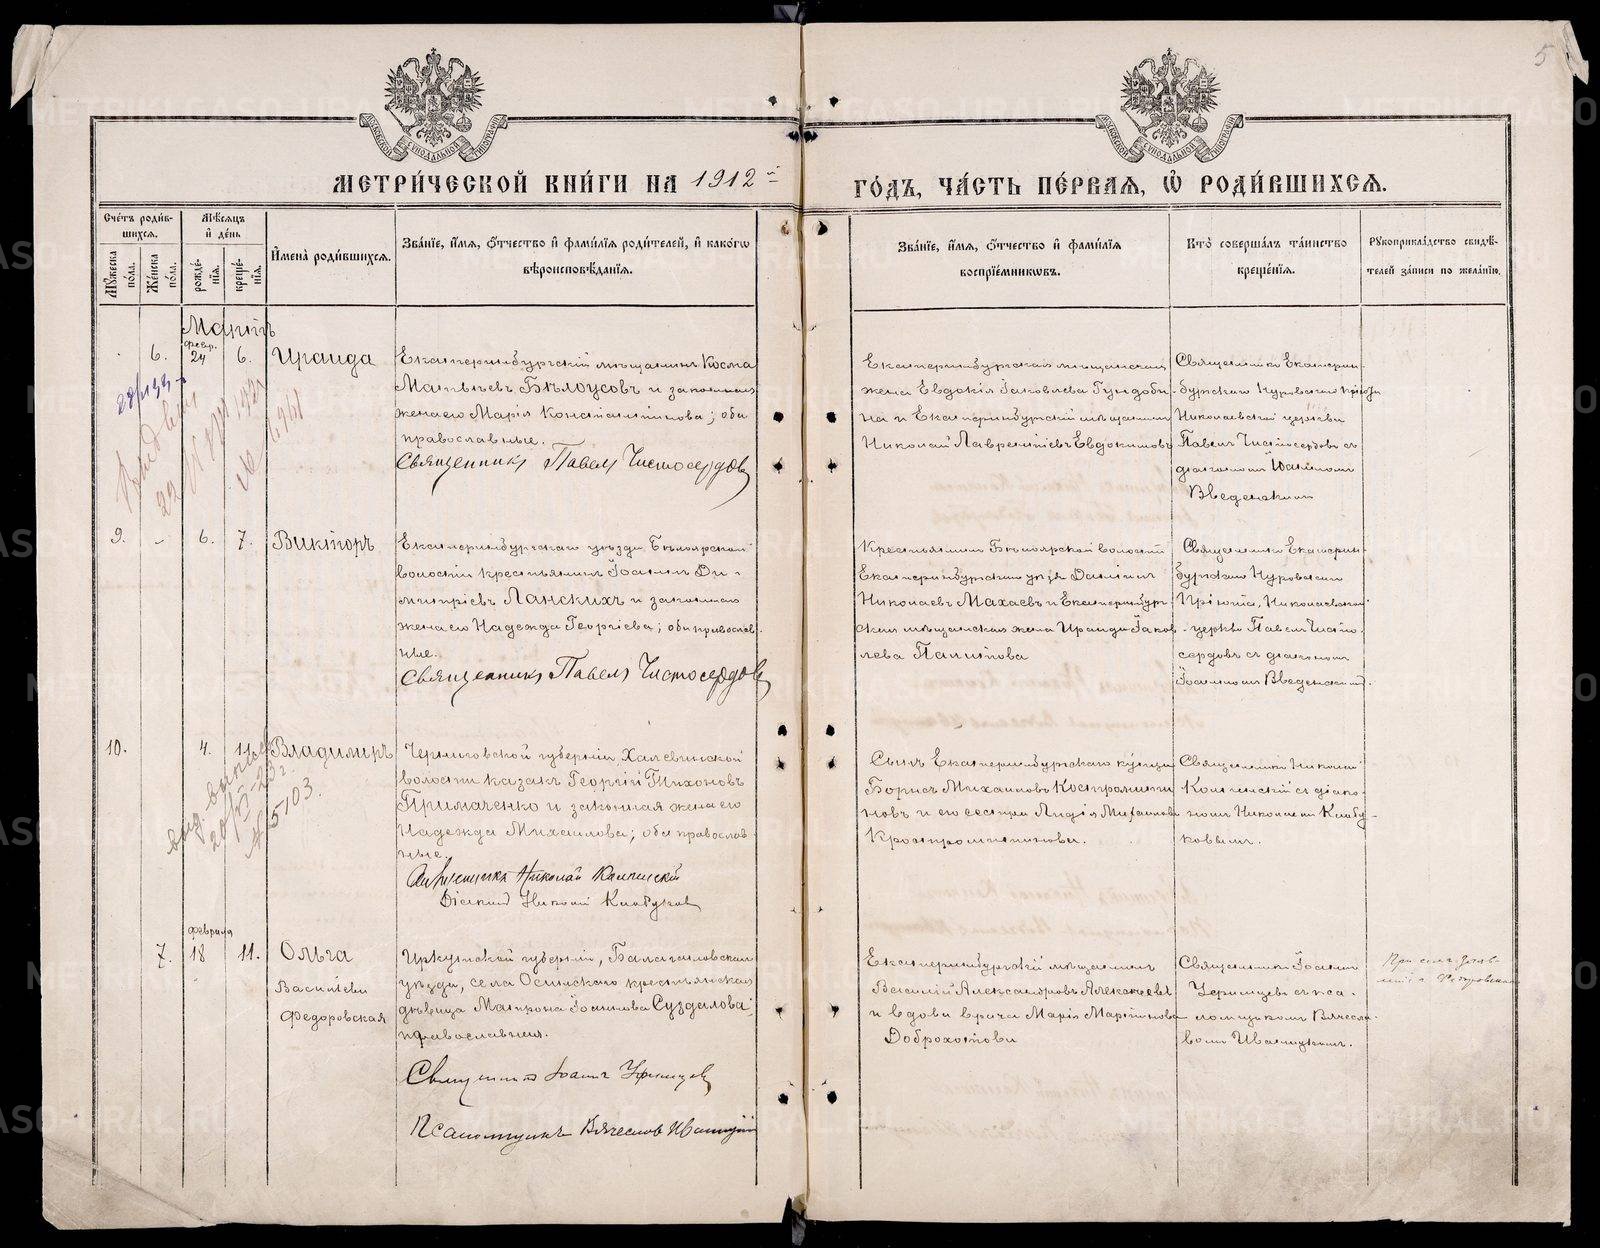 5
МОСКОВСКОЙ СѴНОДАЛЬНОЙ ТИПОГРАФІИ
МОСКОВСКОЙ СѴНОДАЛЬНОЙ ТИПОГРАФІИ
МЕТРИ́ЧЕСКОЙ КНИ́ГИ НА 1912 й
ГО́ДЪ, ЧА́СТЬ ПЕ́РВАЯ, Ѡ҆ РОДИ́ВШИХСЯ.
Сче́тъ роди́в-
шихся.
Му́жеска по́ла.
Же́нска по́ла.
Мѣ́сяцъ
и҆ де́нь
рожде́-
нїя.
креще́-
нїя.
И҆мена̀ роди́вшихся.
Зва́нїе, и҆́мя, ѻ҆́тчество и҆ фами́лїя роди́телей, и҆ како́гѡ
вѣроисповѣ́данїя.
Зва́нїе, и҆́мя, ѻ҆́тчество и҆ фами́лїя
воспрїе́мникѡвъ.
Кто̀ соверша́лъ та́инство
креще́нїя.
Рꙋкоприкла́дство свидѣ́-
телей за́писи по жела́нїю.
Мартъ
февр.
6. 24 6. Ираида
Екатеринбургскій мѣщанинъ Косма
Матвѣевъ Бѣлоусовъ и законная
жена его Марія Константинова; оба
православные.
Священникъ Павелъ Чистосердовъ
Екатеринбургская мѣщанская
жена Евдокія Іаковлева Гундоби-
на и Екатеринбургскій мѣщанинъ
Николай Лаврентіевъ Евдокимовъ
Священникъ Екатерин-
бургскаго Нуровскаго пріюта
Николаевской церкви
Павелъ Чистосердовъ съ
діакономъ Іоанномъ
Введенскимъ
9. - 6. 7. Викторъ
Екатеринбургскаго уѣзда, Бѣлоярской
волости крестьянинъ Іоаннъ Ди-
митріевъ Ланскихъ и законная
жена его Надежда Георгіева; оба православ-
ные.
Священникъ Павелъ Чистосердовъ
Крестьянинъ Бѣлоярской волости
Екатеринбургскаго уѣзда Даніилъ
Николаевъ Махаевъ и Екатеринбург-
ская мѣщанская жена Ираида Іаков-
лева Палитова
Священникъ Екатерин-
бургскаго Нуровскаго
Пріюта, Николаевской
церкви Павелъ Чисто-
сердовъ съ діакономъ
Іоанномъ Введенскимъ.
10. 4. 11. Владимиръ
выд. выпись
№ 5103.
Черниговской губерніи, Халевинской
волости казакъ Георгій Тихоновъ
Примаченко и законная жена его
Надежда Михаилова; оба православ-
ные.
Священникъ Николай
Діаконъ Николай Клабуковъ
Сынъ Екатеринбургскаго купца
Борисъ Михаиловъ Костромити-
новъ и его сестра Лидія Михаилова
Костромитинова.
Священникъ Николай
съ діако-
номъ Николаемъ Клабу-
ковымъ.
февраля
7. 18 11. Ольга
Васильева
Федоровская
Иркутской губерніи, Балаганскаго
уѣзда, села Осинскаго крестьянская
дѣвица Матрона Іоаннова Суздалова;
православная.
Священникъ Іоаннъ
Псаломщикъ Вячеславъ Иваницкій
Екатеринбургскій мѣщанинъ
Василій Александровъ Алексѣевъ
и вдова врача Марія Мартинова
Доброхотова
Священникъ Іоаннъ
съ пса-
ломщикомъ Вячесла-
вомъ Иваницкимъ.